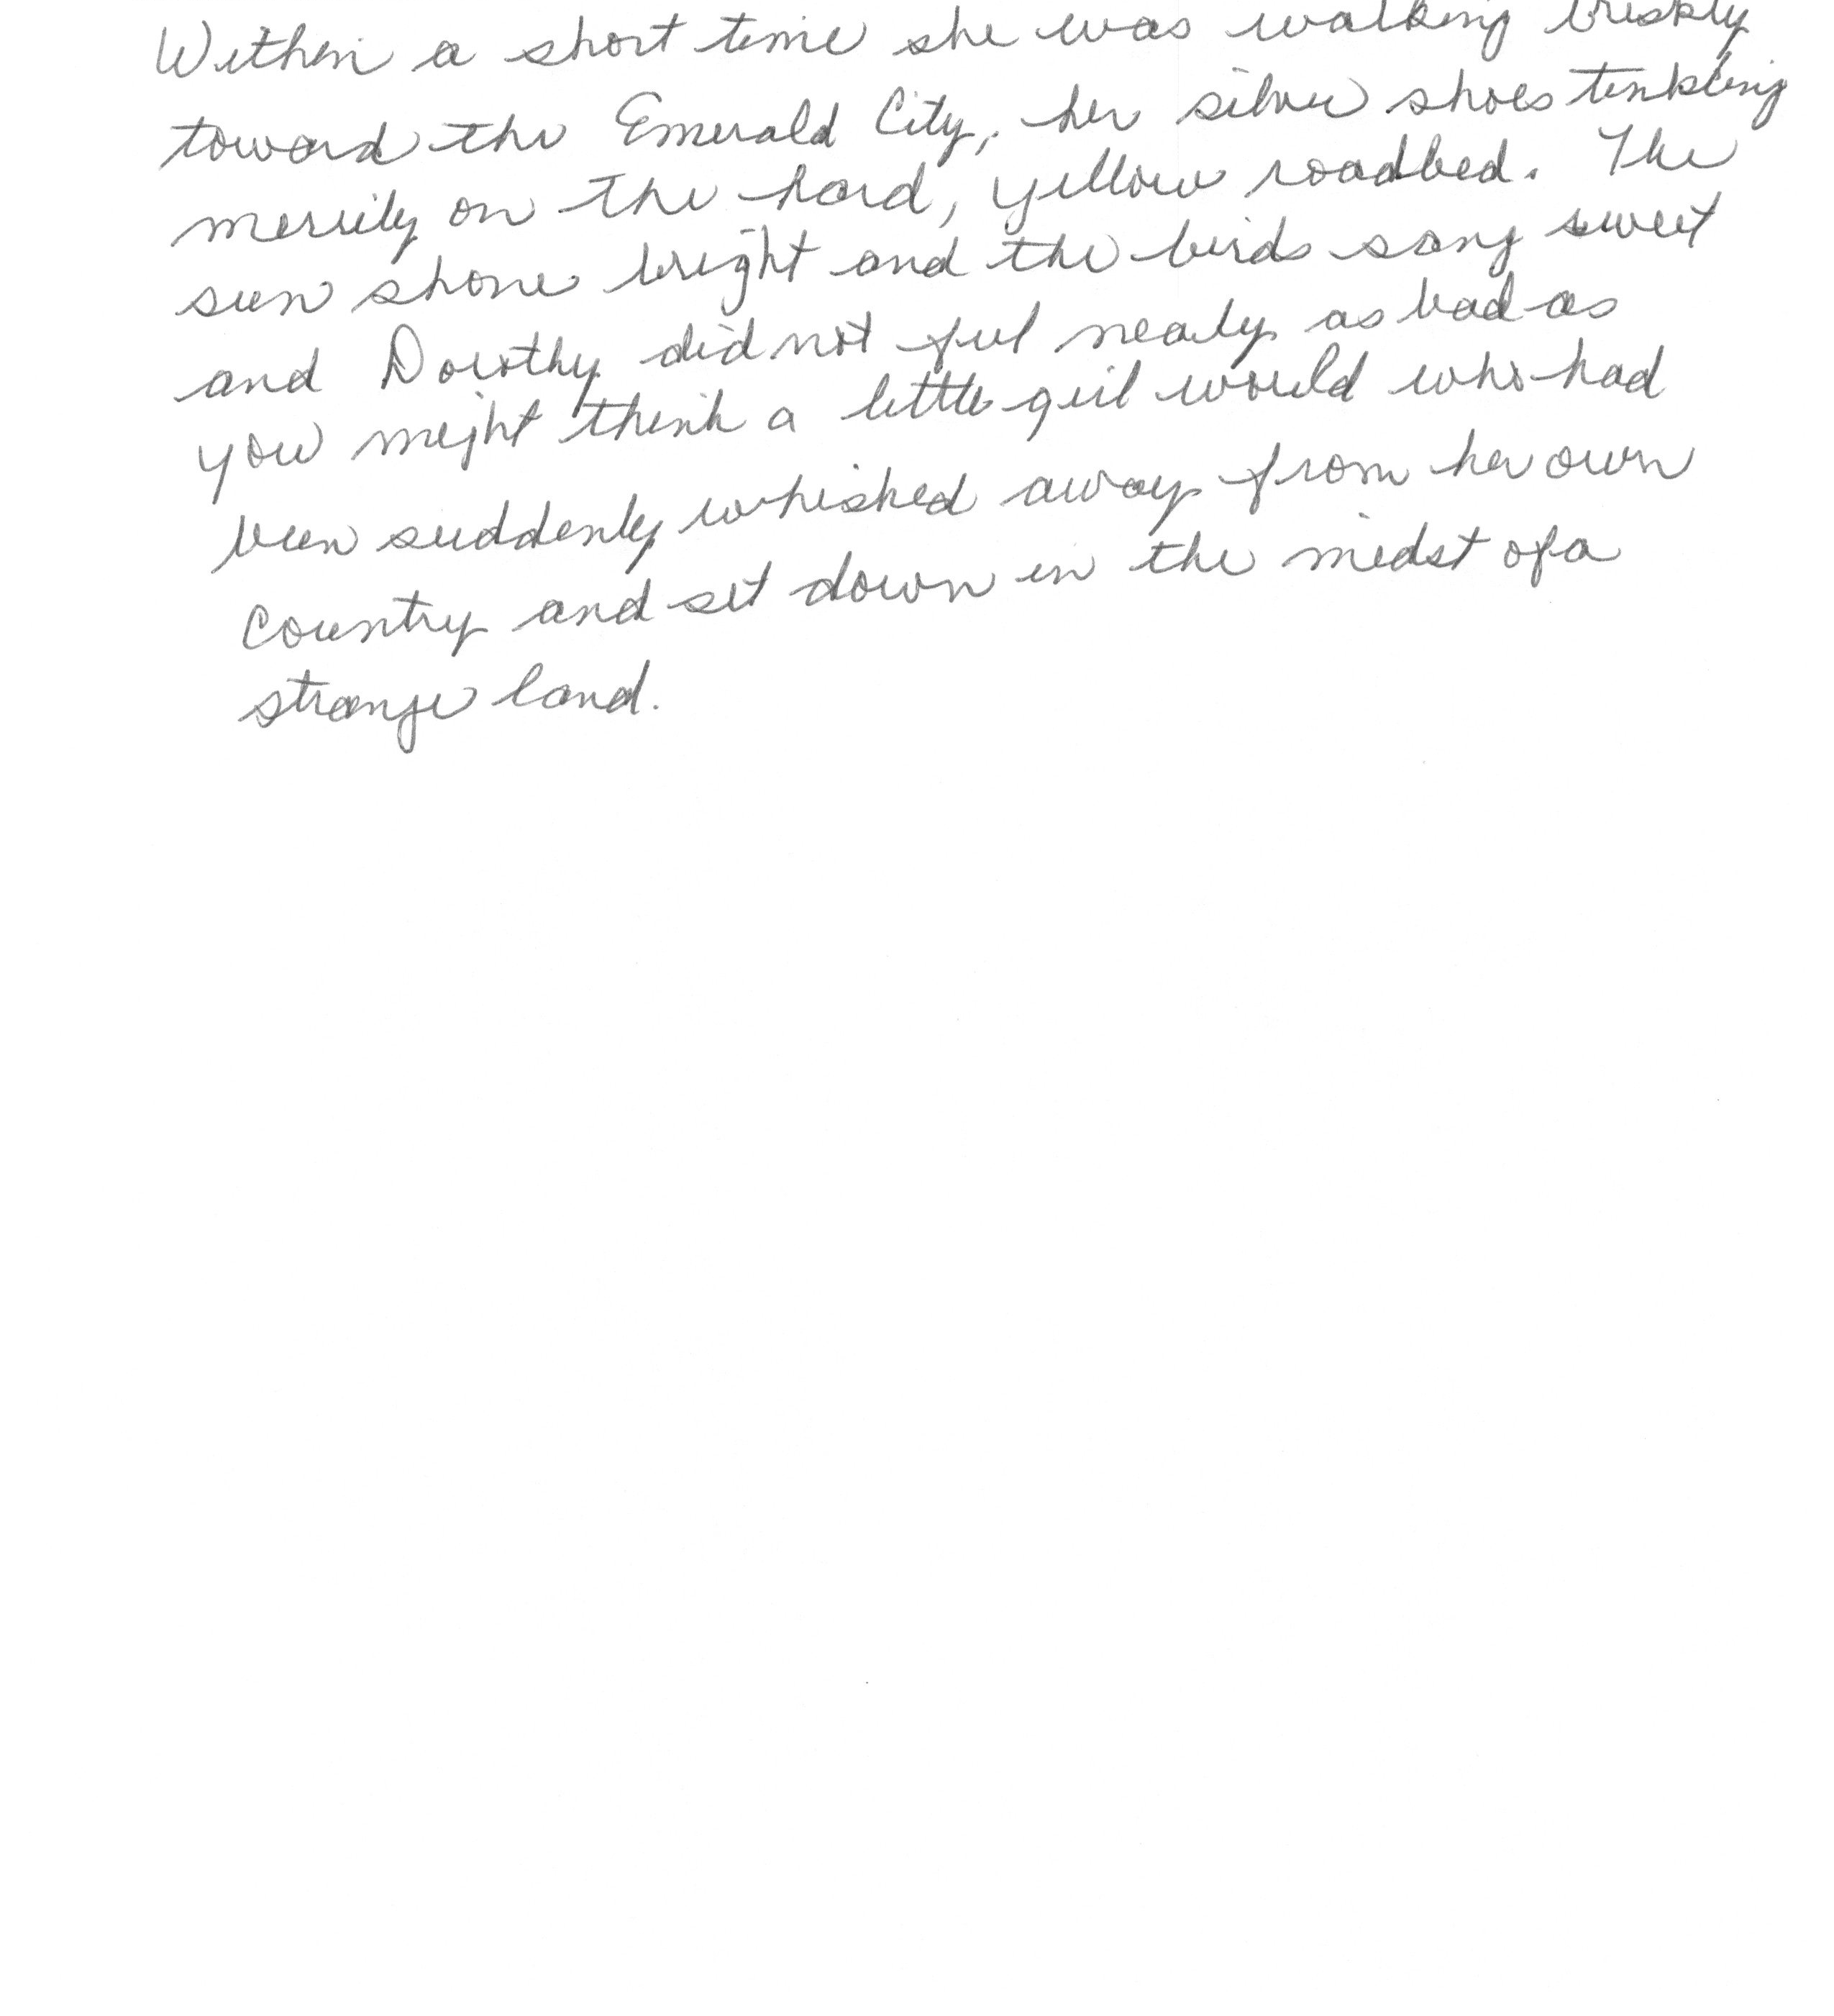 Within a short time she was walking briskly
toward the Emerald City, her silver shoes tinkling
merrily on the hard, yellow roadbed. The
sun shone bright and the birds sang sweet
and Dorothy did not feel nearly as bad as
you might think a little girl would who had
been suddenly whished away from her own
country and set down in the midst of a
strange land.